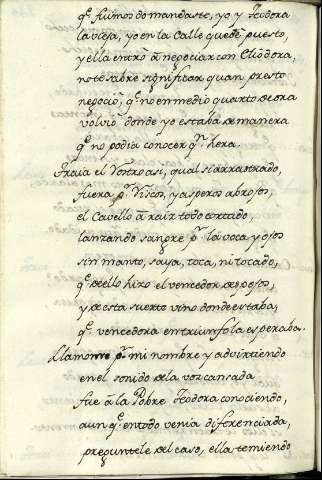 q̃ fuimos do mandaste, yo y Teodora
la vieja, yo en la Calle quedè puesto,
y ella entrò à negociar con Eliodora,
no te sabre significar quan presto
negociò, q̃ no en medio quarto de ora
volviò donde yo estaba de manera
q̃ no podia conocer q.n hera.
Traia el rostro asi, qual si arrastrado,
fuera p.r riscos, y asperos abrojos,
el Cavello à raiz todo cortado,
lanzando sangre p.r la voca y ojos
sin manto, saya, toca, ni tocado,
q̃ dello hizo el vencedor despojos,
y desta suerte vino donde estaba,
q̃ vencedora en triunfo la esperaba.
Llamome p.r mi nombre y advirtiendo
en el sonido de la voz cansada
fue à la Pobre Teodora conociendo,
aunq̃ en todo venia diferenciada,
preguntele del caso, ella temiendo